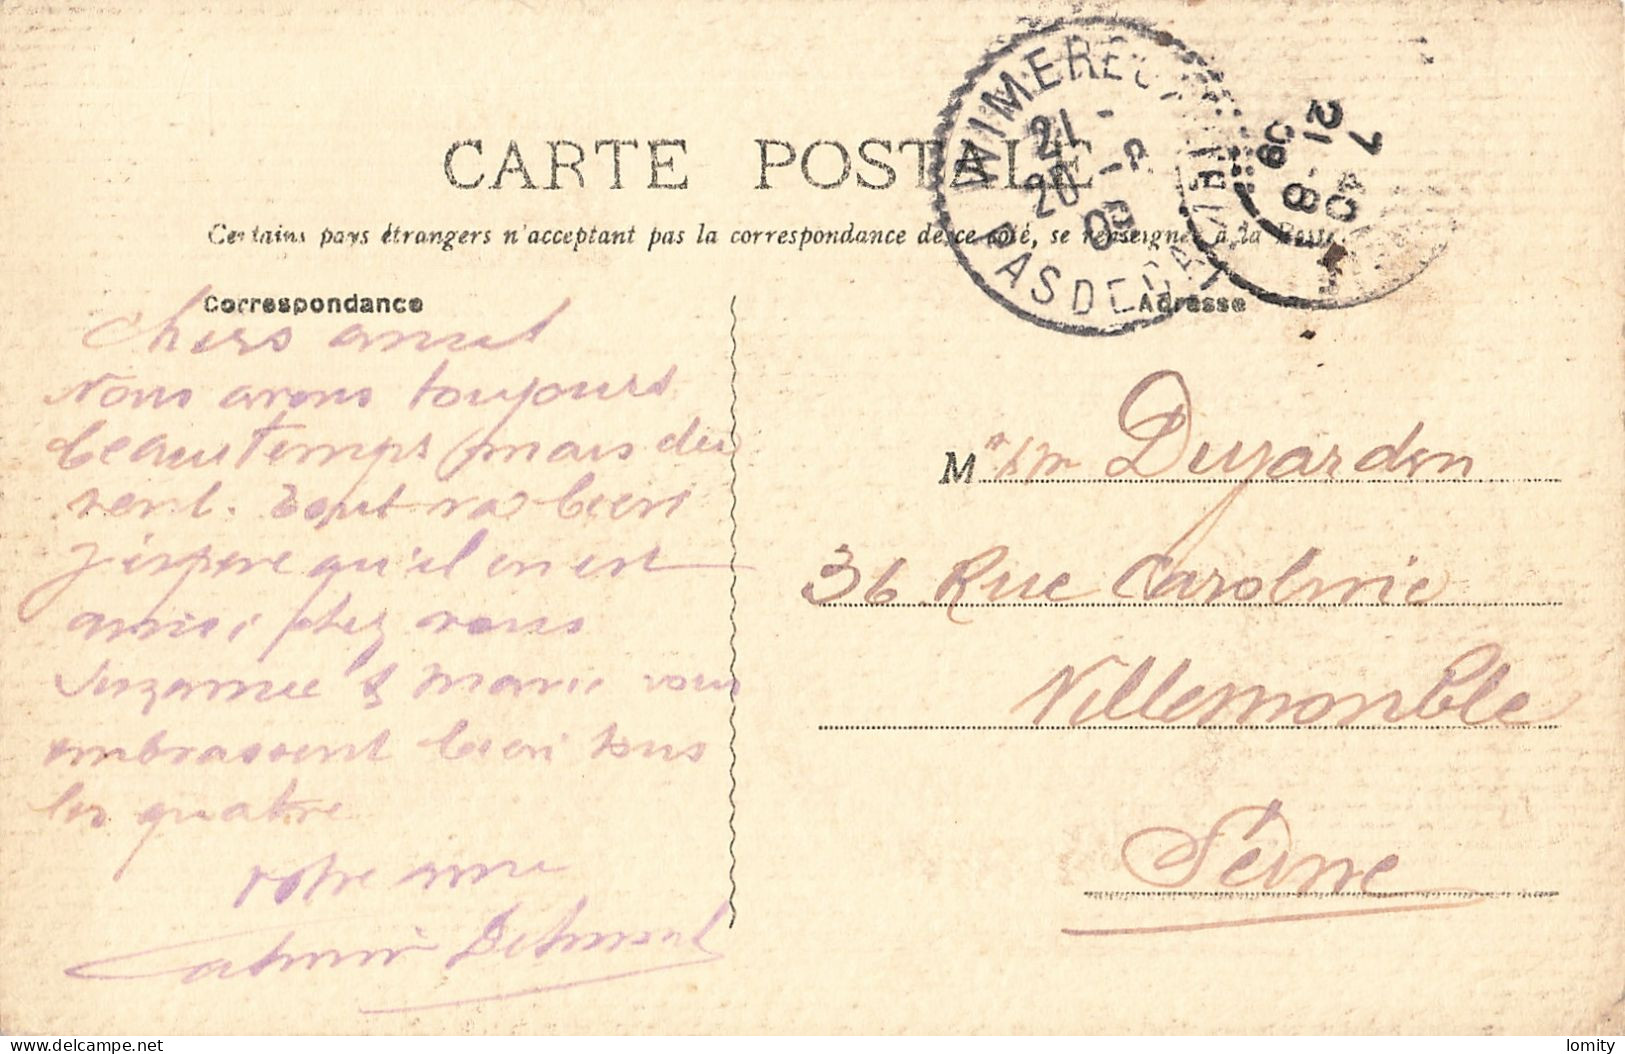 CARTE POSTALE
Certains pays étrangers n'acceptant pas la correspondance de ce côté, se renseigner à la Poste.
Correspondance
Adresse
WIMEREUX
21
20 - 8
09
PAS DE CALAIS
7 40
21 - 8
09
Chers amis
Nous avons toujours
beau temps mais du
vent. Tout va bien
J'espere qu'il en est
ainsi chez vous
Suzanne & Marie vous
embrassent bien tous
les quatre
votre ami
Casimir
M r & Mm Dujardin
36 Rue Caroline
Villemomble
Seine
delcampe.net
lomity